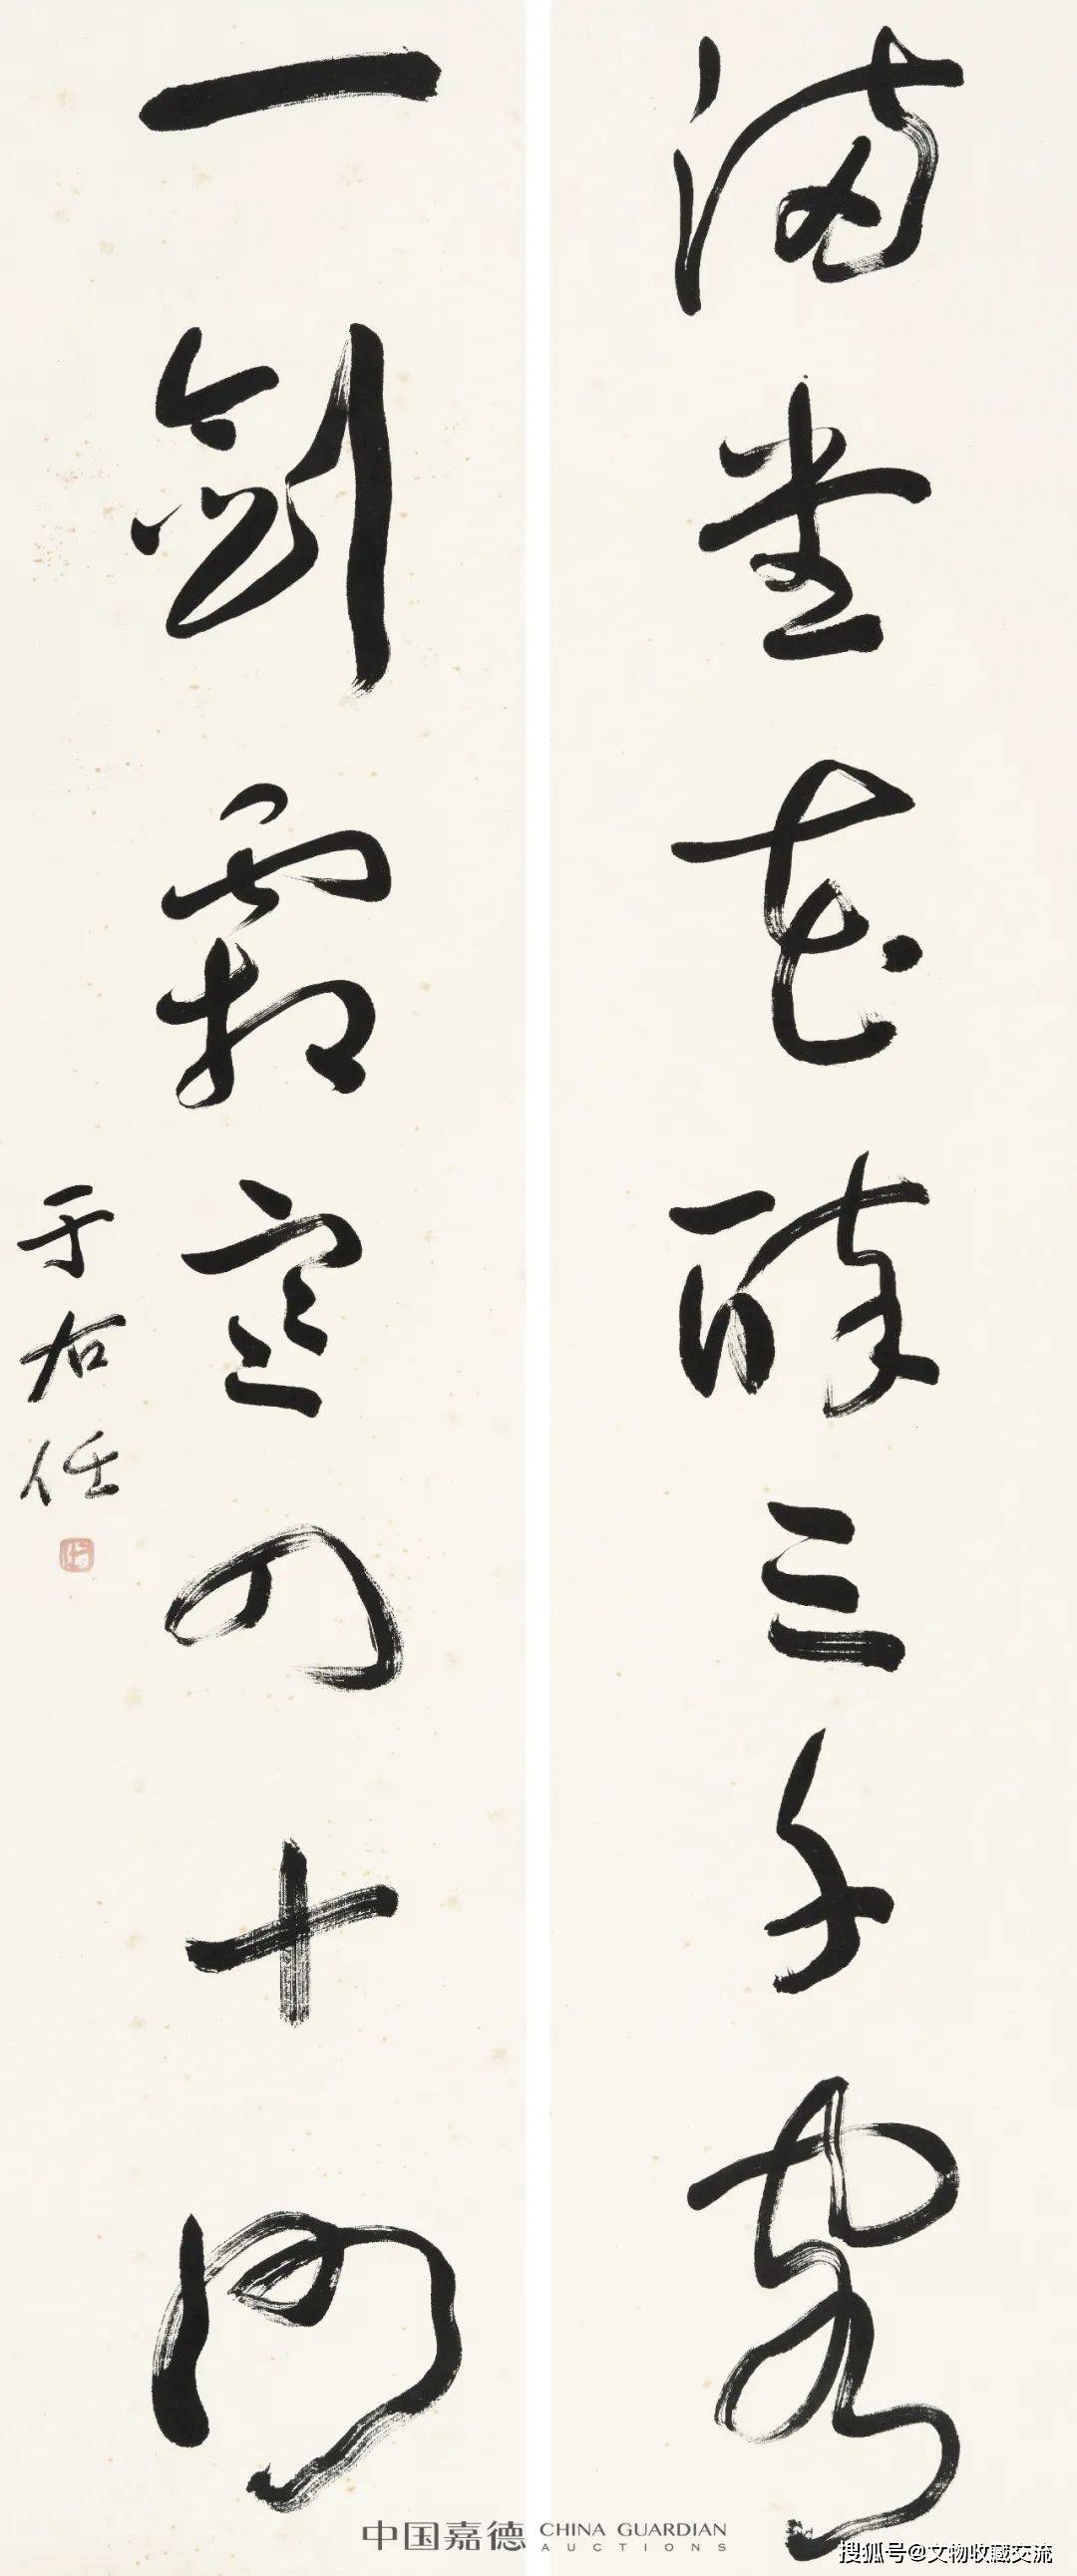 满堂花醉三千客
一剑霜寒四十州
于右任
中国嘉德 CHINA GUARDIAN
AUCTIONS
搜狐号@文物收藏交流